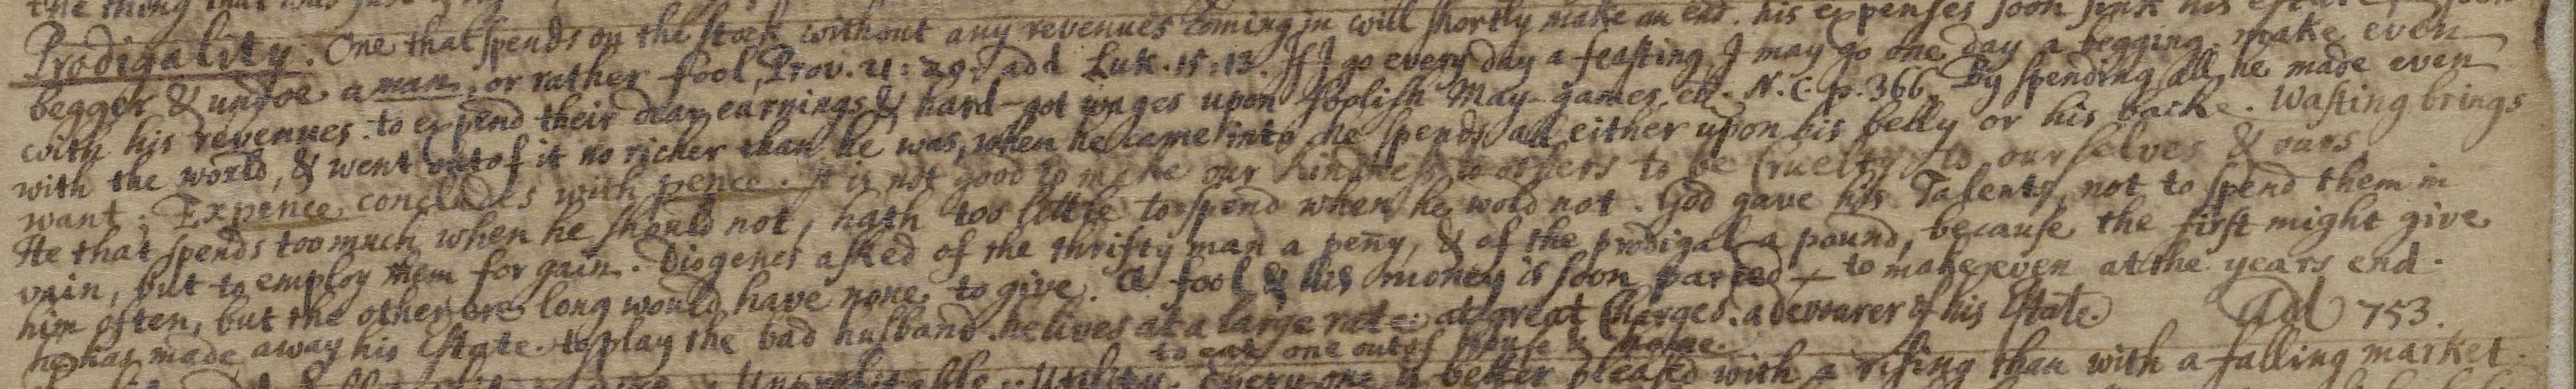 the thing that was just
Prodigality. One that spends on the stock without any revenues coming in will shortly make an end. his expenses soon sink his
begger & undoe a man, or rather fool, Prov. 21. 20. add Luk. 15. 13. If I go every day a feasting, I may go one day a begging. make even
with his revenues. to expend their dear earnings & hard-got wages upon foolish May-games. N. C. p. 366. By spending all he made even
with the world, & went out of it no richer than he was, when he came into he spends all either upon his belly or his back. Wasting brings
want; Expence concludes with pence. It is not good to make our kindness to others to be Cruelty to our selves & ours.
He that spends too much when he should not, hath too little to spend when he wold not. God gave his Talents, not to spend them in
vain, but to employ them for gain. Diogenes asked of the thrifty man a peny, & of the prodigal a pound, because the first might give
him often, but the other ere long would have none to give. A fool & his money is soon parted + to make even at the years end.
he has made away his Estate. to play the bad husband. he lives at a large rate: at great Charges. a devourer of his Estate. Add 753.
to eat one out of house & home.
Unprofitable. Utility. Every one is better pleased with a rising than with a falling market.